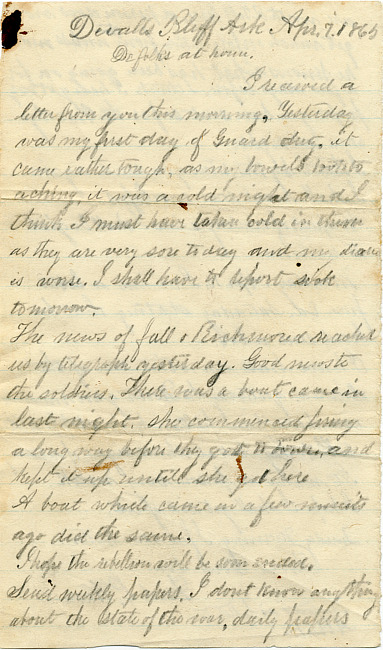 Devalls Bluff Ark Apr. 7. 1865
De folks at home.
I recieved a
letter from you this morning. Yesterday
was my first day of Guard duty, it
came rather tough, as my bowels took to
aching, it was a cold night and I
think I must have taken cold in them
as they are very sore to day and my
is worse. I shall have to report sick
tomorrow.
The news of fall o Richmond reached
us by telegraph yesterday. Good news to
the soldiers. There was a boat came in
last night. she commenced firing
a long way before they got to town, and
kept it up until she got here
A boat which came in a few minuits
ago did the same.
I hope the rebellion will be soon ended.
Send weekly papers. I dont know anything
about the state of the war, daily papers